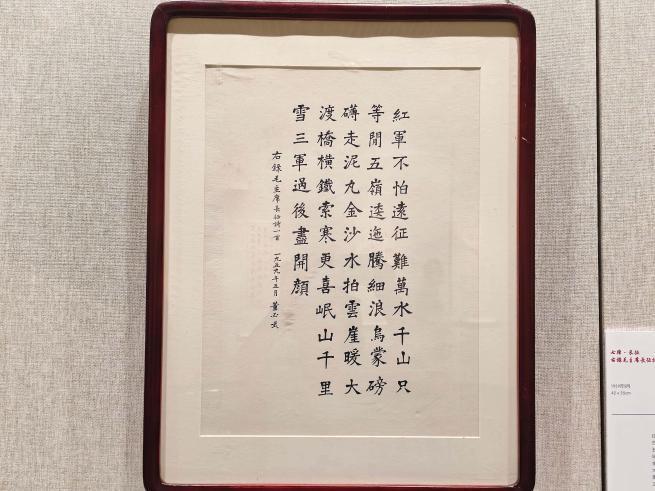 紅軍不怕遠征難萬水千山只
等閒五嶺逶迤騰細浪烏蒙磅
礴走泥九金沙水拍雲崖暖大
渡橋橫鐵索寒更喜岷山千里
雪三軍過後盡開顏
右錄毛主席長征詩一首 一九五九年五月 董必武
七律·长征
右録毛主席長征
1959年5月